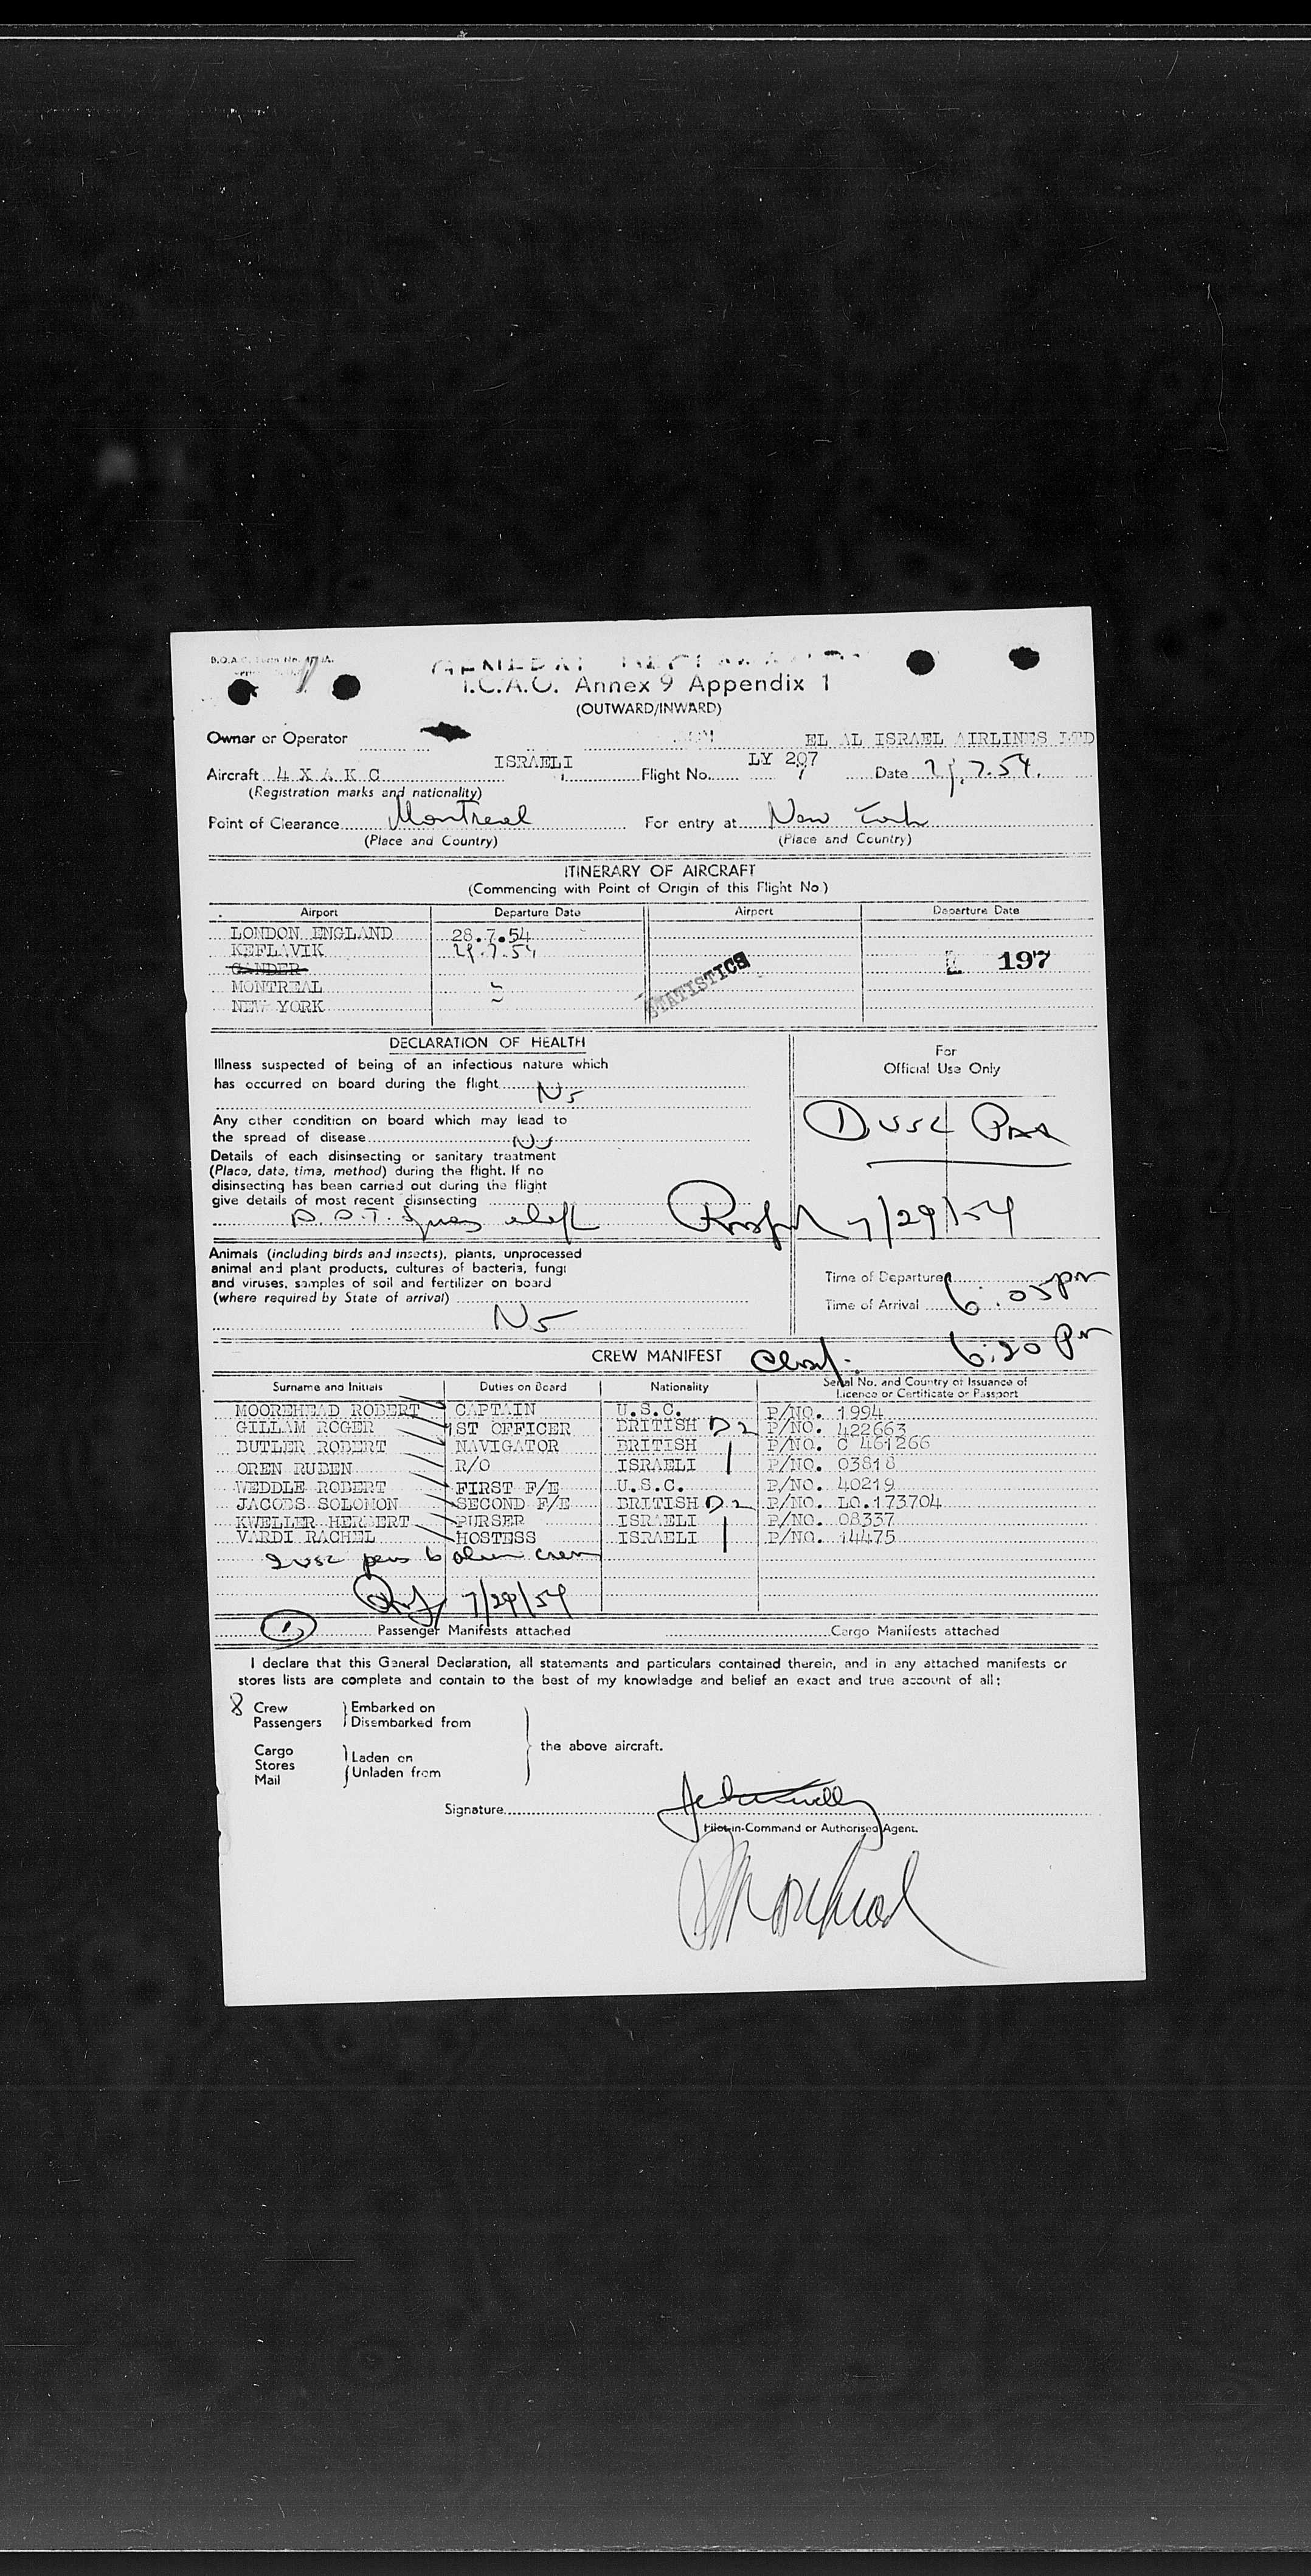 GENERAL DECLARATION
I.C.A.O. Annex 9 Appendix 1
(OUTWARD/INWARD)
Owner or Operator EL AL ISRAEL AIRLINES LTD
Aircraft 4 X A K C ISRAELI Flight No. LY 207 Date 29.7.54.
(Registration marks and nationality)
Point of Clearance Montreal For entry at New York
(Place and Country) (Place and Country)
ITINERARY OF AIRCRAFT
(Commencing with Point of Origin of this Flight No.)
Airport Departure Date Airport Departure Date
LONDON ENGLAND 28.7.54
KEFLAVIK 29.7.54
GANDER
MONTREAL
NEW YORK
STATISTICS
197
DECLARATION OF HEALTH
Illness suspected of being of an infectious nature which
has occurred on board during the flight No
Any other condition on board which may lead to
the spread of disease No
Details of each disinsecting or sanitary treatment
(Place, date, time, method) during the flight. If no
disinsecting has been carried out during the flight
give details of most recent disinsecting
D.D.T. Spray aloft
Animals (including birds and insects), plants, unprocessed
animal and plant products, cultures of bacteria, fungi
and viruses, samples of soil and fertilizer on board
(where required by State of arrival)
No
For
Official Use Only
1 USC PAA
7/29/54
Time of Departure
Time of Arrival 6:05 pm
6:20 Pm
CREW MANIFEST
Surname and Initials Duties on Board Nationality Serial No. and Country of Issuance of Licence or Certificate or Passport
MOOREHEAD ROBERT CAPTAIN U.S.C. P/NO. 1994
GILLAM ROGER 1ST OFFICER BRITISH D2 P/NO. 422663
BUTLER ROBERT NAVIGATOR BRITISH P/NO. C 461266
OREN RUBEN R/O ISRAELI P/NO. 03818
WEDDLE ROBERT FIRST F/E U.S.C. P/NO. 40219
JACOBS SOLOMON SECOND F/E BRITISH D2 P/NO. LO.173704
KWELLER HERBERT PURSER ISRAELI P/NO. 08337
VARDI RACHEL HOSTESS ISRAELI P/NO. 14475
2 USC 6 alien crew
7/29/54
1 Passenger Manifests attached Cargo Manifests attached
I declare that this General Declaration, all statements and particulars contained therein, and in any attached manifests or
stores lists are complete and contain to the best of my knowledge and belief an exact and true account of all:
8 Crew Embarked on
Passengers Disembarked from
the above aircraft.
Cargo Laden on
Stores Unladen from
Mail
Signature
Pilot-in-Command or Authorised Agent.